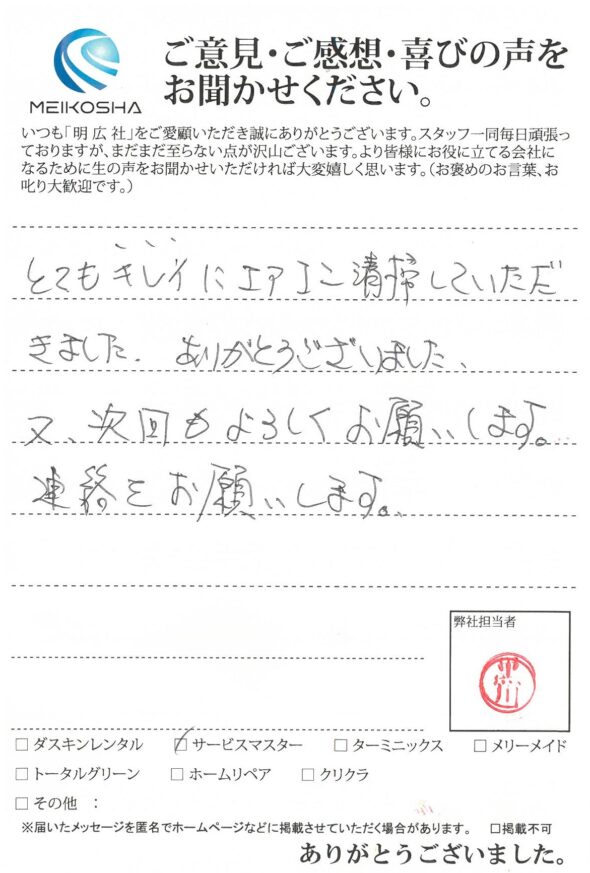 MEIKOSHA
ご意見・ご感想・喜びの声を
お聞かせください。
いつも「明広社」をご愛顧いただき誠にありがとうございます。スタッフ一同毎日頑張っ
ておりますが、まだまだ至らない点が沢山ございます。より皆様にお役に立てる会社に
なるために生の声をお聞かせいただければ大変嬉しく思います。（お褒めのお言葉、お
叱り大歓迎です。）
とてもキレイにエアコン清掃していただ
きました. ありがとうございました、
又、次回もよろしくお願いします。
連絡をお願いします。
弊社担当者
□ ダスキンレンタル □ サービスマスター □ ターミニックス □ メリーメイド
□ トータルグリーン □ ホームリペア □ クリクラ
□ その他 ：
※届いたメッセージを匿名でホームページなどに掲載させていただく場合があります。 □掲載不可
ありがとうございました。